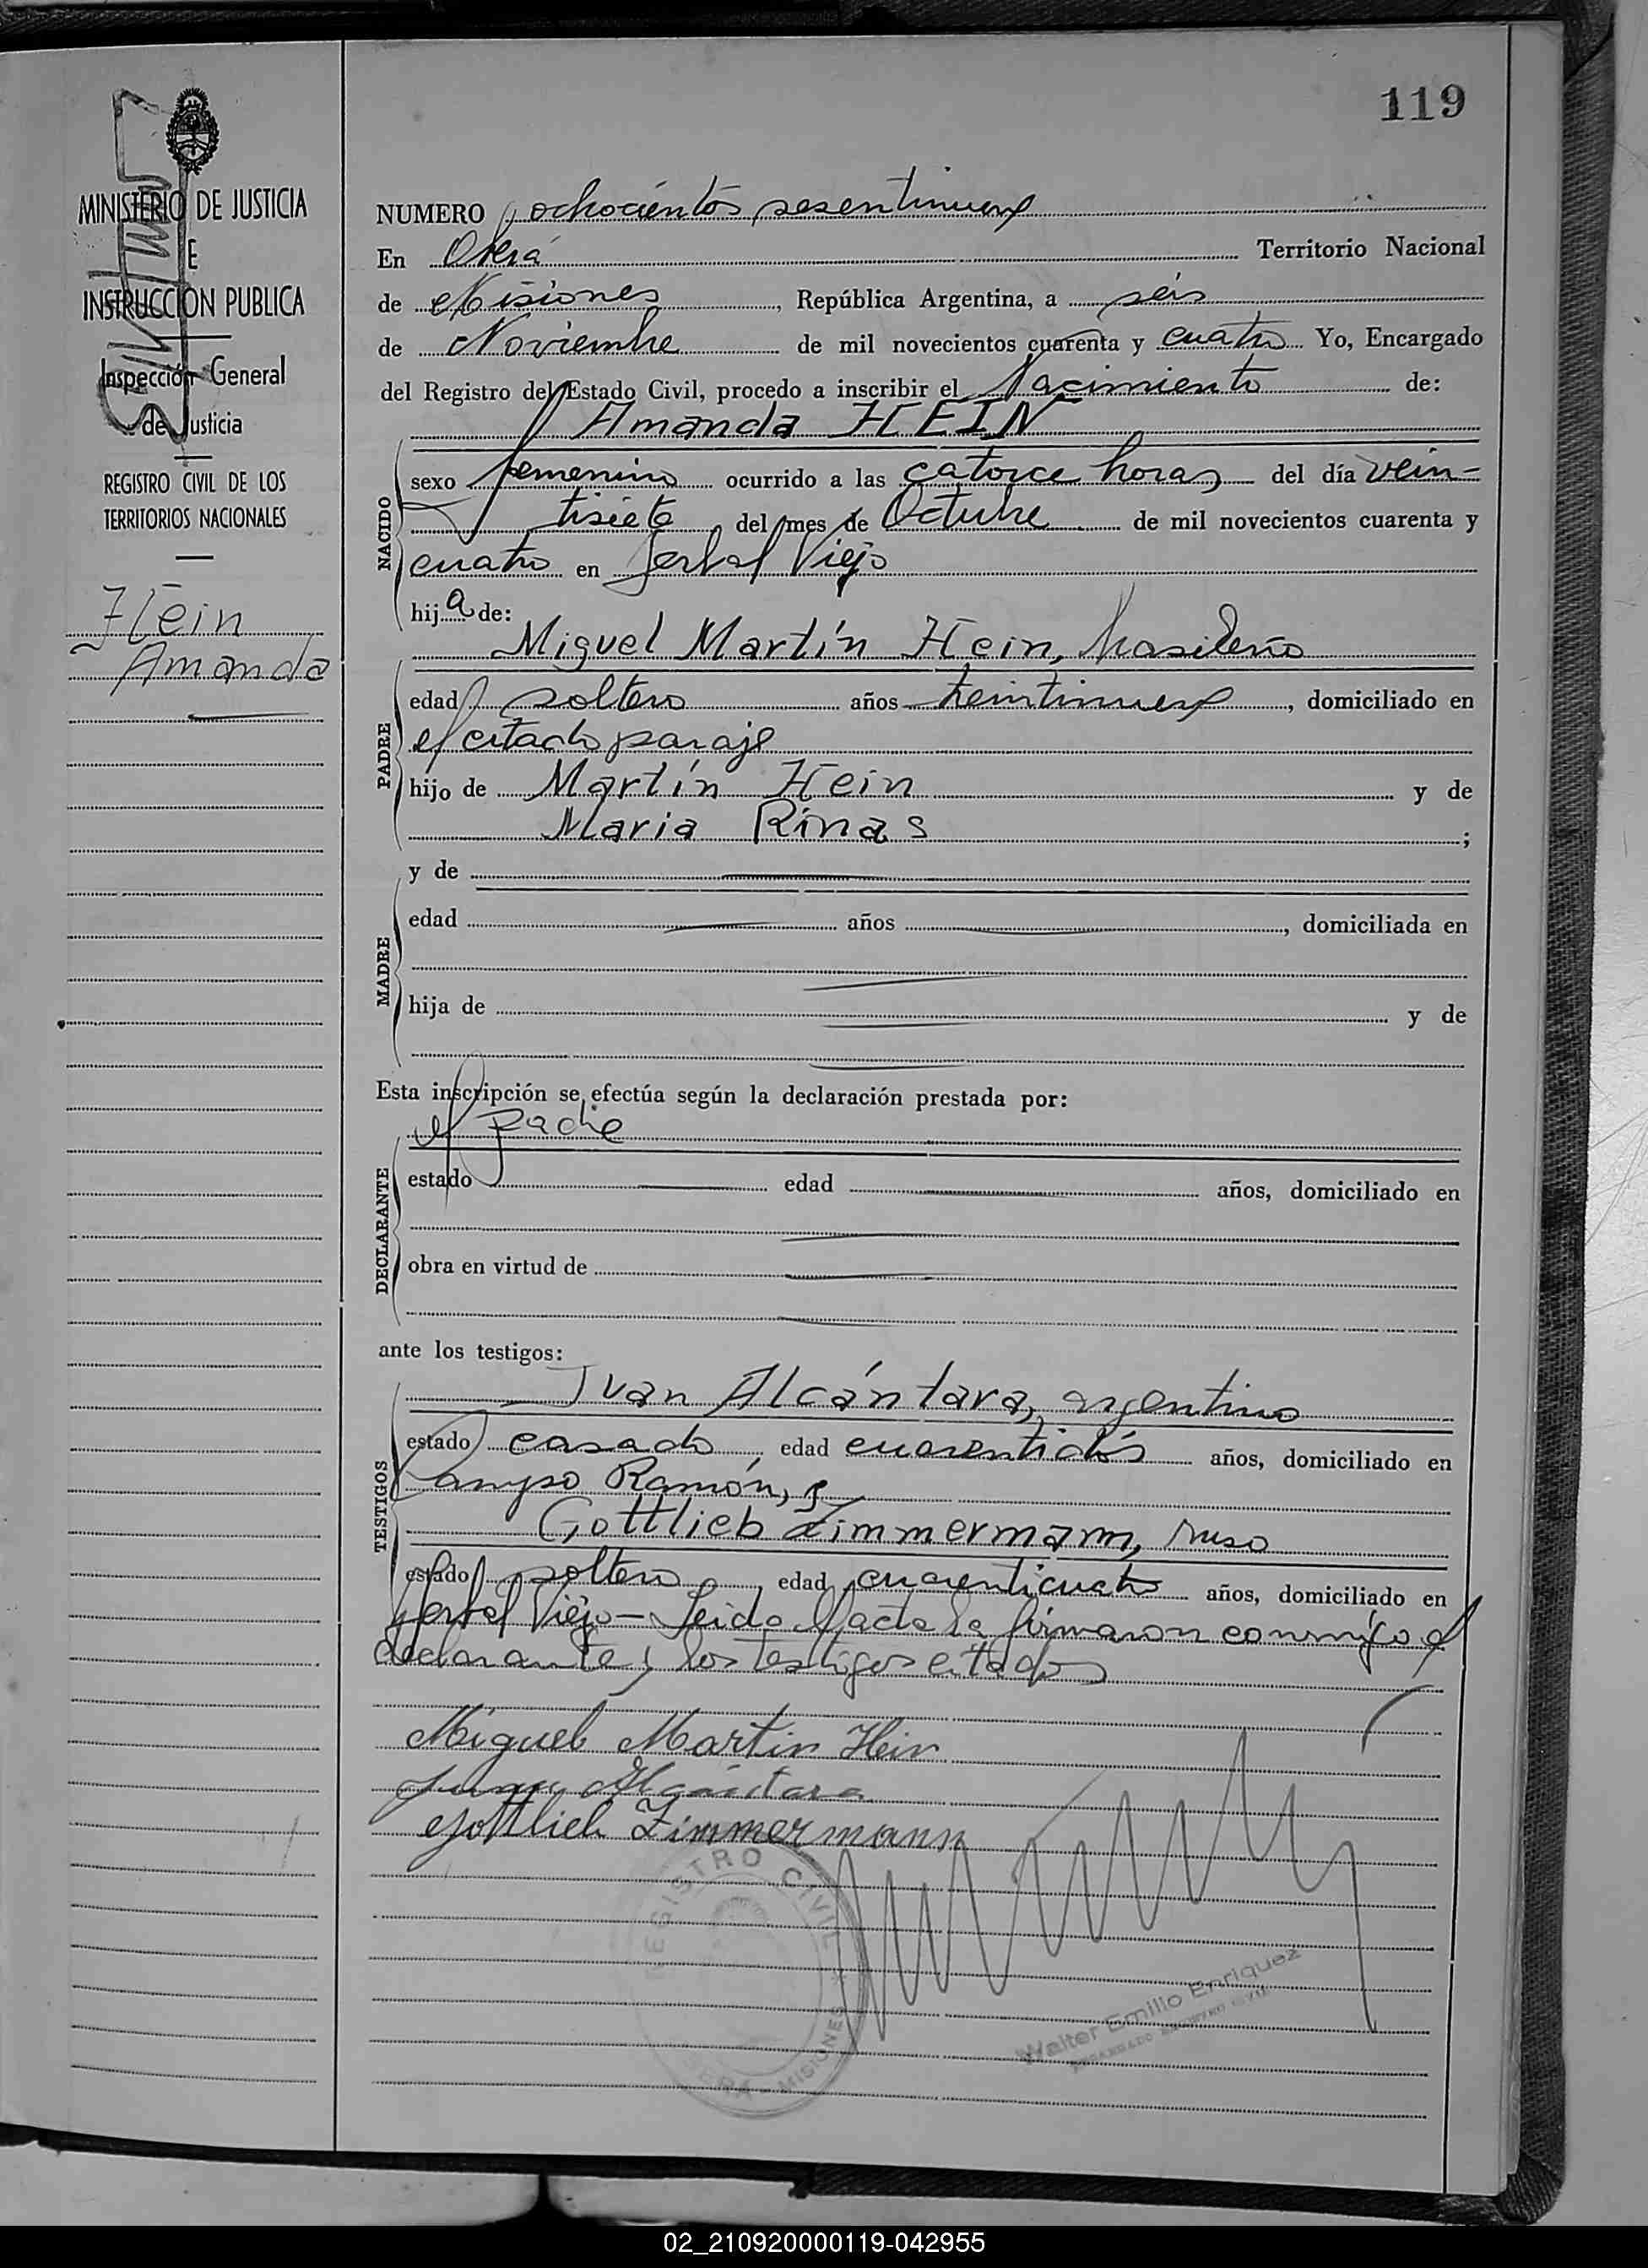 119
MINISTERIO DE JUSTICIA
E
INSTRUCCION PUBLICA
Inspección General
de Justicia
REGISTRO CIVIL DE LOS
TERRITORIOS NACIONALES
Hein
Amanda
NUMERO ochocientos sesentinueve
En Oberá Territorio Nacional
de Misiones, República Argentina, a seis
de Noviembre de mil novecientos cuarenta y cuatro Yo, Encargado
del Registro del Estado Civil, procedo a inscribir el Nacimiento de:
Amanda HEIN
NACIDO
sexo femenino ocurrido a las catorce horas del día vein-
tisiete del mes de Octubre de mil novecientos cuarenta y
cuatro en Yerbal Viejo
hija de:
Miguel Martín Hein, brasileño
PADRE
edad soltero años treintinueve, domiciliado en
el citado paraje
hijo de Martín Hein y de
Maria Rinas;
y de
MADRE
edad años, domiciliada en
hija de y de
Esta inscripción se efectúa según la declaración prestada por:
el padre
DECLARANTE
estado edad años, domiciliado en
obra en virtud de
ante los testigos:
Juan Alcántara, argentino
TESTIGOS
estado casado, edad cuarentidós años, domiciliado en
Campo Ramón, y
Gottlieb Zimmermann, ruso
estado soltero, edad cuarenticuatro años, domiciliado en
Yerbal Viejo- Leida el acta la firmaron conmigo el
declarante y los testigos citados
Miguel Martin Hein
Juan Alcántara
Gottlieb Zimmermann
REGISTRO CIVIL
OBERÁ - MISIONES
Walter Emilio Enriquez
ENCARGADO REGISTRO CIVIL
02_210920000119-042955